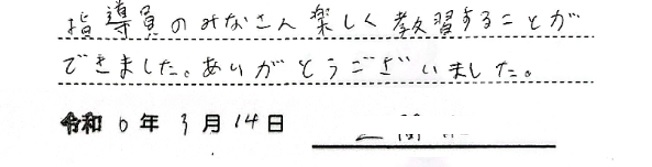 指導員のみなさん楽しく教習することが
できました。ありがとうございました。
令和6年3月14日